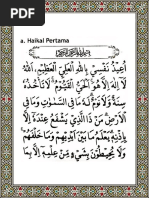 a. Haikal Pertama
بِسْمِ اللَّهِ الرَّحْمَٰنِ الرَّحِيمِ
أُعِيذُ نَفْسِيْ بِاللهِ الْعَلِيِّ الْعَظِيْمِ، اَللهُ
لَا إِلٰهَ إِلَّا هُوَ الْحَيُّ الْقَيُّوْمُ لَا تَأْخُذُهُ
سِنَةٌ وَلَا نَوْمٌ لَهُ مَا فِي السَّمٰوَاتِ وَمَا فِي
الْأَرْضِ مَنْ ذَا الَّذِيْ يَشْفَعُ عِنْدَهُ إِلَّا
بِإِذْنِهِ يَعْلَمُ مَا بَيْنَ أَيْدِيْهِمْ وَمَا خَلْفَهُمْ
وَلَا يُحِيْطُوْنَ بِشَيْءٍ مِنْ عِلْمِهِ إِلَّا بِمَا